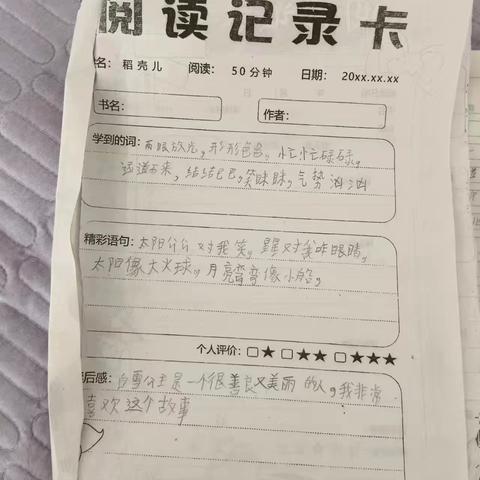 阅读记录卡
名：稻壳儿 阅读：50分钟 日期：20xx.xx.xx
书名： 作者：
学到的词：两眼放光，形形色色，忙忙碌碌，
远道而来，结结巴巴，笑眯眯，气势汹汹
精彩语句：太阳公公对我笑，星星对我眨眼睛，
太阳像大火球，月亮弯弯像小船，
个人评价：□★ □★★ □★★★
后感：白雪公主是一个很善良又美丽的人，我非常
喜欢这个故事